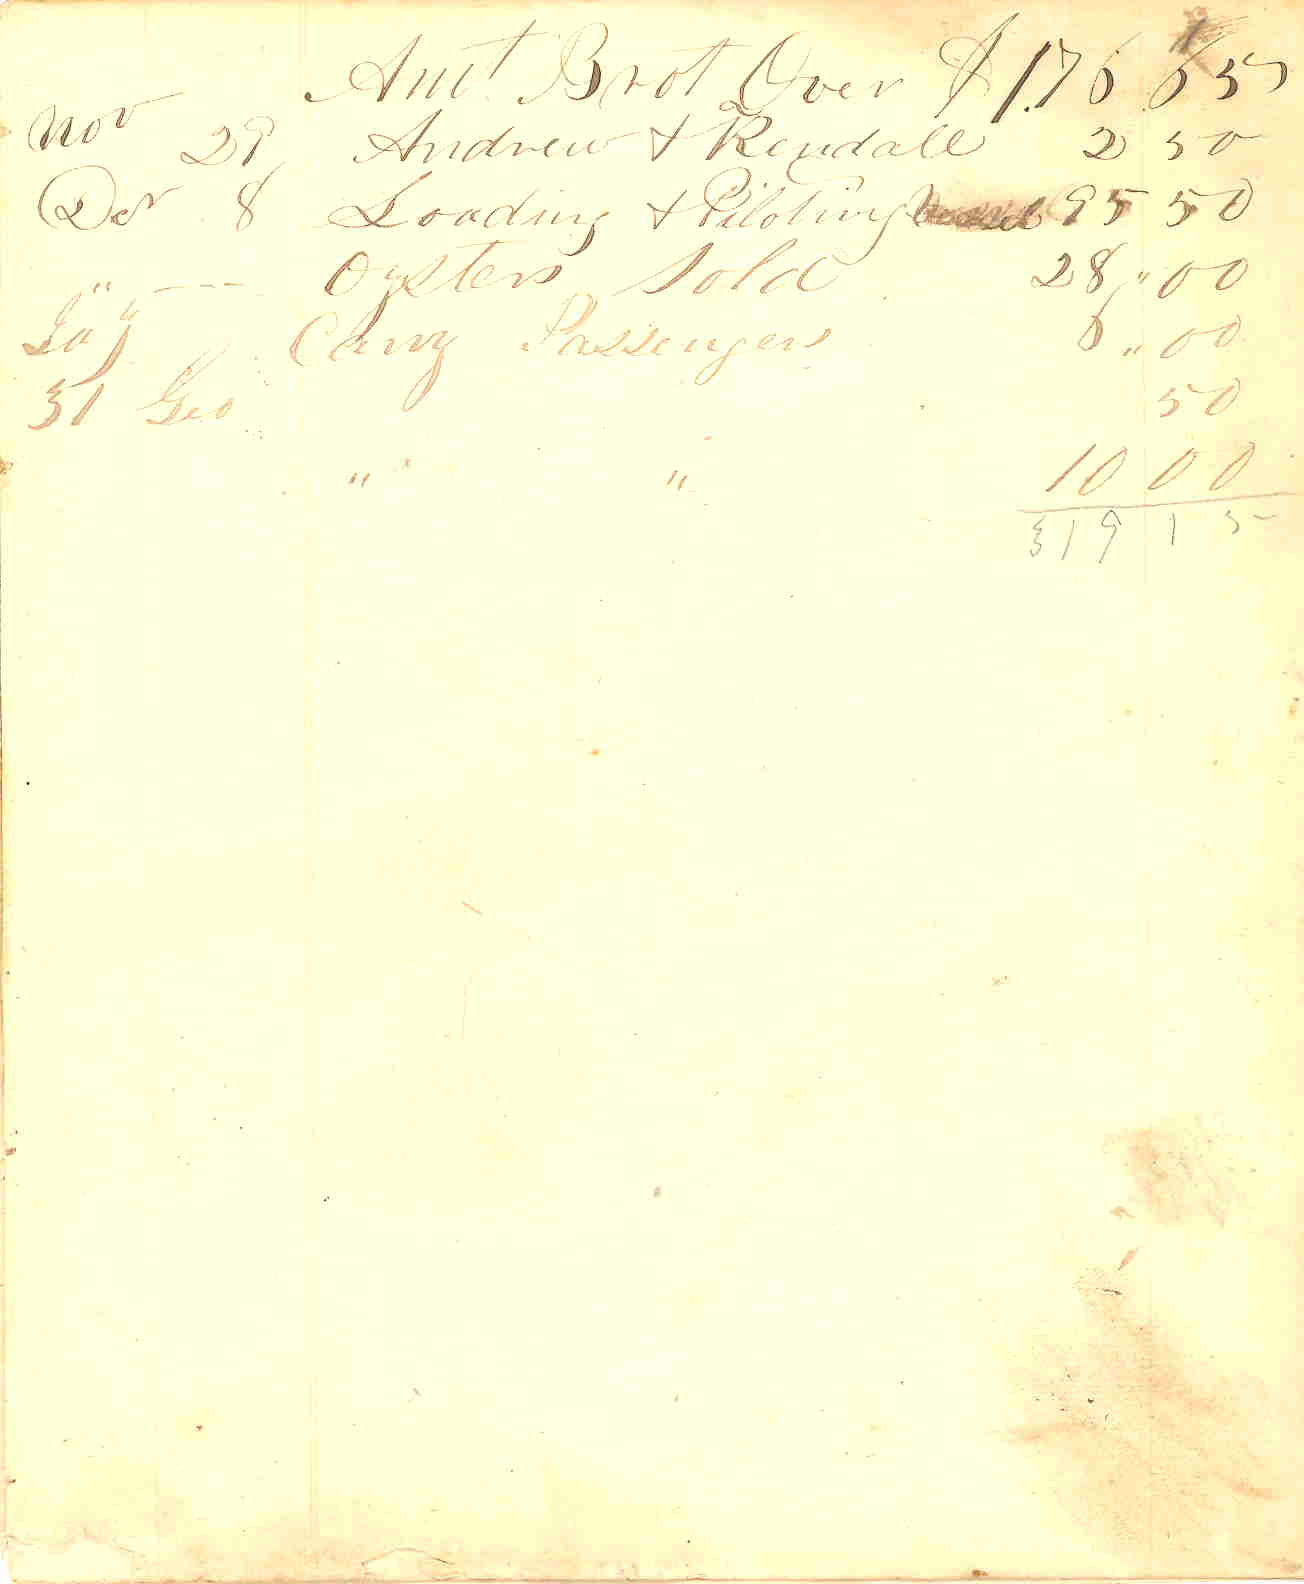 Amt Brot Over $176 65
Nov 29 Andrew & Rendall 2 50
Der 8 Loading & Piloting Vessel 95 50
" --- Oysters Sold 28 " 00
" Carry Passengers 6 " 00
31 Geo 50
" " 10 00
319 15